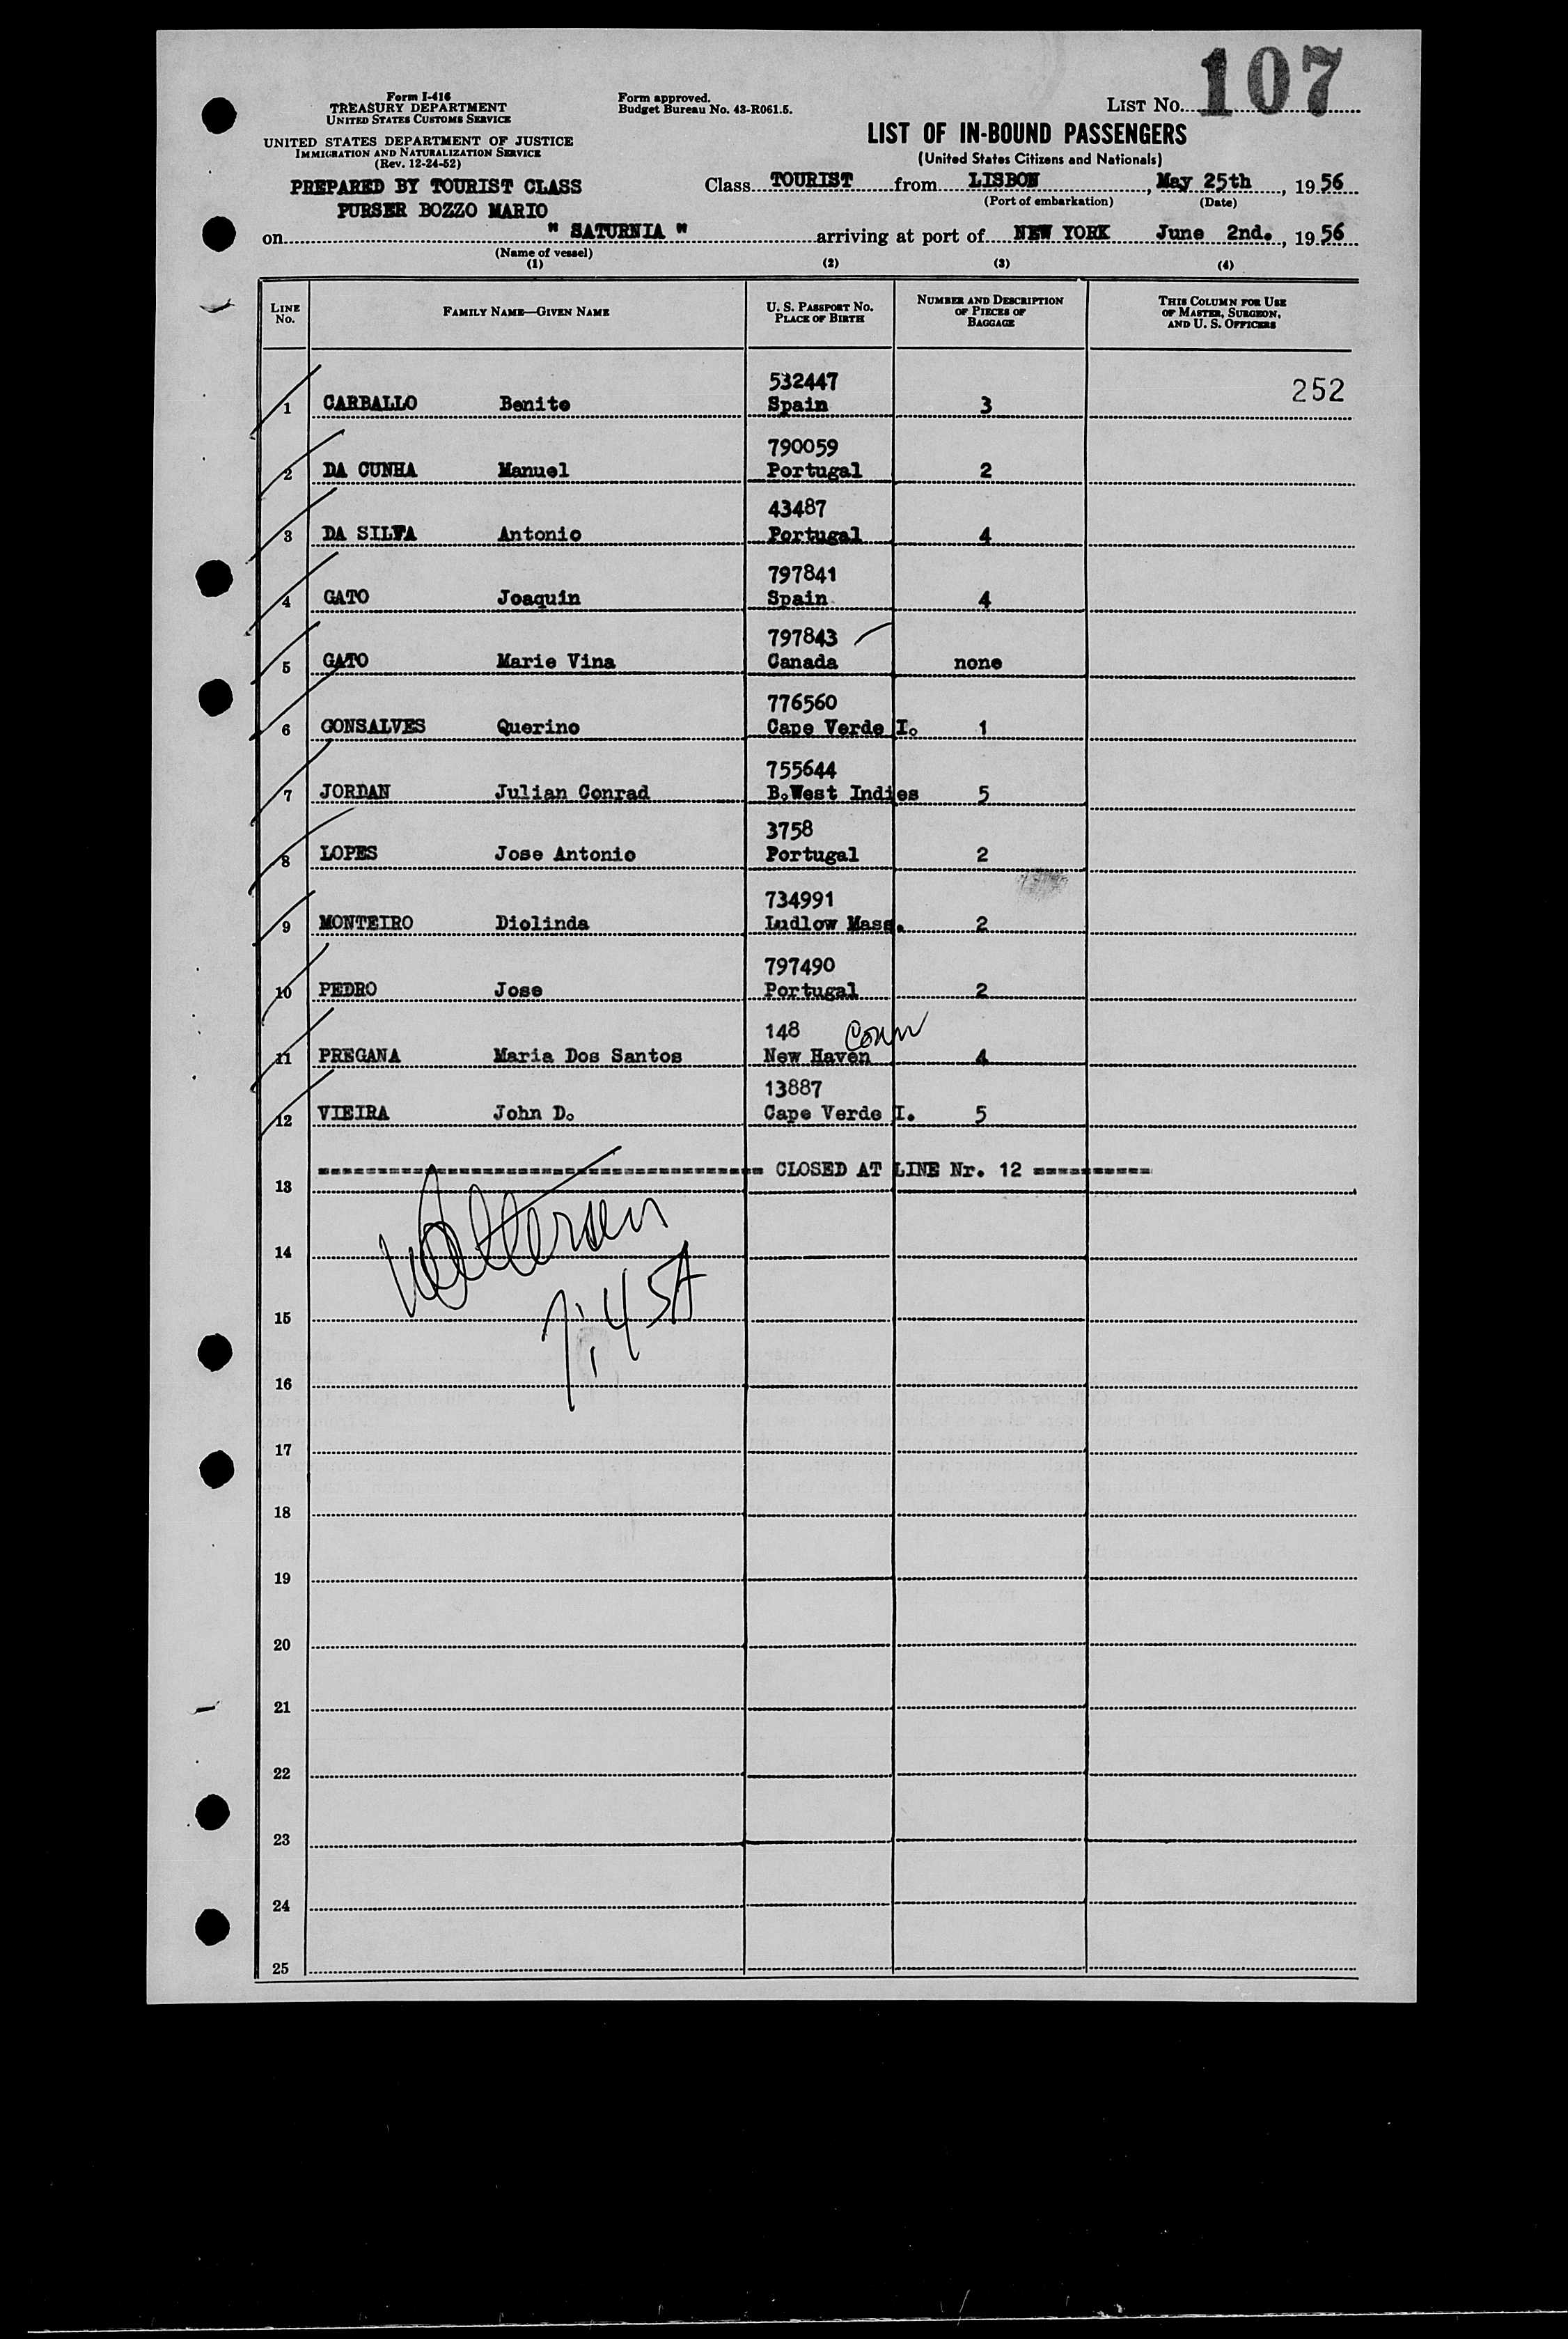 107
Form I-416
TREASURY DEPARTMENT
UNITED STATES CUSTOMS SERVICE
UNITED STATES DEPARTMENT OF JUSTICE
IMMIGRATION AND NATURALIZATION SERVICE
(Rev. 12-24-52)
Form approved.
Budget Bureau No. 43-R061.5.
LIST No.
LIST OF IN-BOUND PASSENGERS
(United States Citizens and Nationals)
PREPARED BY TOURIST CLASS
PURSER BOZZO MARIO
Class TOURIST from LISBON, May 25th, 1956
(Port of embarkation) (Date)
on " SATURNIA " arriving at port of NEW YORK June 2nd., 1956
(Name of vessel)
(1) (2) (3) (4)
LINE No. FAMILY NAME—GIVEN NAME U. S. PASSPORT No. PLACE OF BIRTH NUMBER AND DESCRIPTION OF PIECES OF BAGGAGE THIS COLUMN FOR USE OF MASTER, SURGEON, AND U. S. OFFICERS
532447 252
1 CARBALLO Benito Spain 3
790059
2 DA CUNHA Manuel Portugal 2
43487
3 DA SILVA Antonio Portugal 4
797841
4 GATO Joaquin Spain 4
797843
5 GATO Marie Vina Canada none
776560
6 GONSALVES Querino Cape Verde I. 1
755644
7 JORDAN Julian Conrad B.West Indies 5
3758
8 LOPES Jose Antonio Portugal 2
734991
9 MONTEIRO Diolinda Ludlow Mass. 2
797490
10 PEDRO Jose Portugal 2
148 Conn
11 PREGANA Maria Dos Santos New Haven 4
13887
12 VIEIRA John D. Cape Verde I. 5
CLOSED AT LINE Nr. 12
13
14
15
16
17
18
19
20
21
22
23
24
25